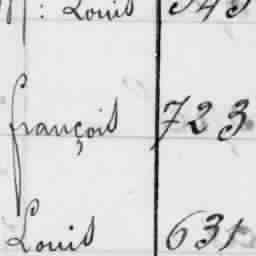 : Louis 545
françois 723
Louis 631